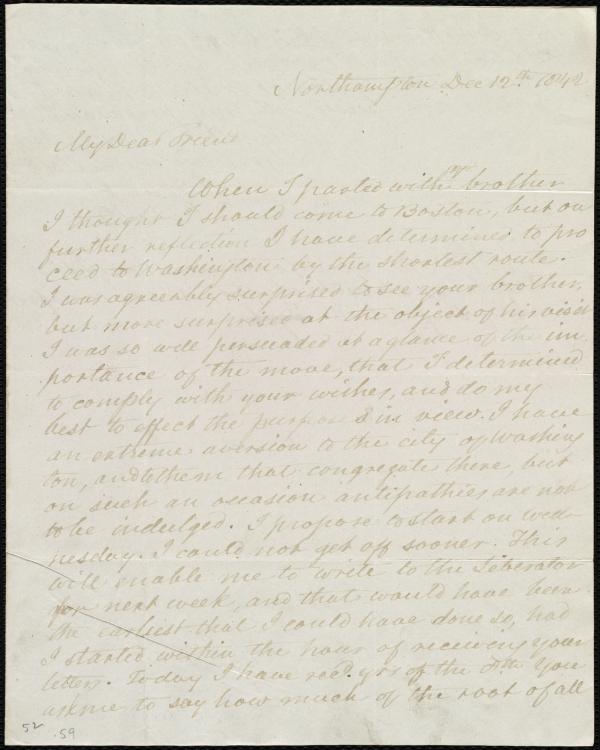 Northampton Dec 12th 1842
My Dear Friend
When I parted with yr brother
I thought I should come to Boston, but on
further reflection I have determined to pro
ceed to Washington by the shortest route.
I was agreeably surprised to see your brother,
but more surprised at the object of his visit
I was so well persuaded at a glance of the im
portance of the move, that I determined
to comply with your wishes, and do my
best to effect the purpose in view. I have
an extreme aversion to the city of Washing
ton, and them that congregate there, but
on such an occasion antipathies are not
to be indulged. I propose to start on wed-
nesday. I could not get off sooner. This
will enable me to write to the Liberator
for next week, and that would have been
the earliest that I could have done so, had
I started within the hour of receiving your
letters. Today I have recd. yrs of the You
ask me to say how much of the root of all
52
.59